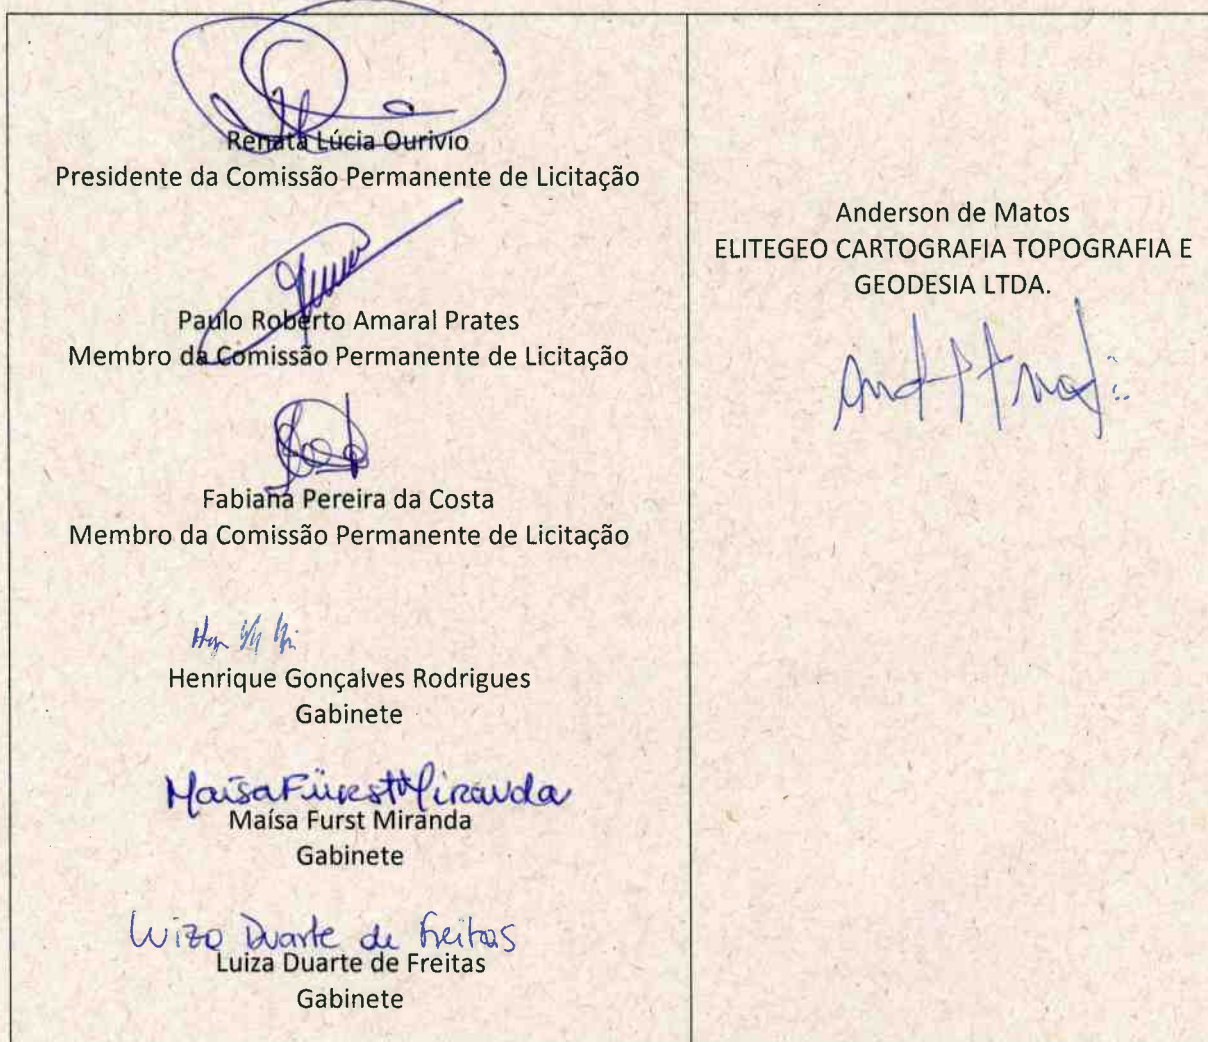 Renata Lúcia Ourivio
Presidente da Comissão Permanente de Licitação
Paulo Roberto Amaral Prates
Membro da Comissão Permanente de Licitação
Fabiana Pereira da Costa
Membro da Comissão Permanente de Licitação
Henrique Gonçalves Rodrigues
Gabinete
Maísa Fürst Miranda
Maísa Furst Miranda
Gabinete
Luiza Duarte de Freitas
Luiza Duarte de Freitas
Gabinete
Anderson de Matos
ELITEGEO CARTOGRAFIA TOPOGRAFIA E
GEODESIA LTDA.